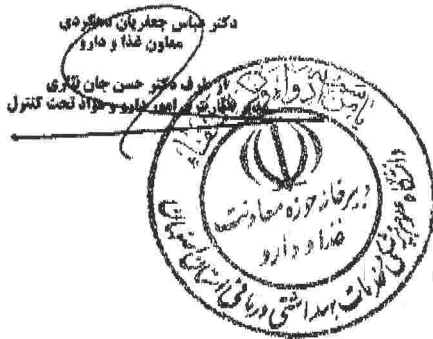 دکتر عباس جعفریان دهکردی
معاون غذا و دارو
از طرف دکتر حسن جان نثاری
امور دارو و مواد تحت کنترل
دبیرخانه حوزه معاونت
غذا و دارو
دانشگاه علوم پزشکی و خدمات بهداشتی درمانی استان اصفهان